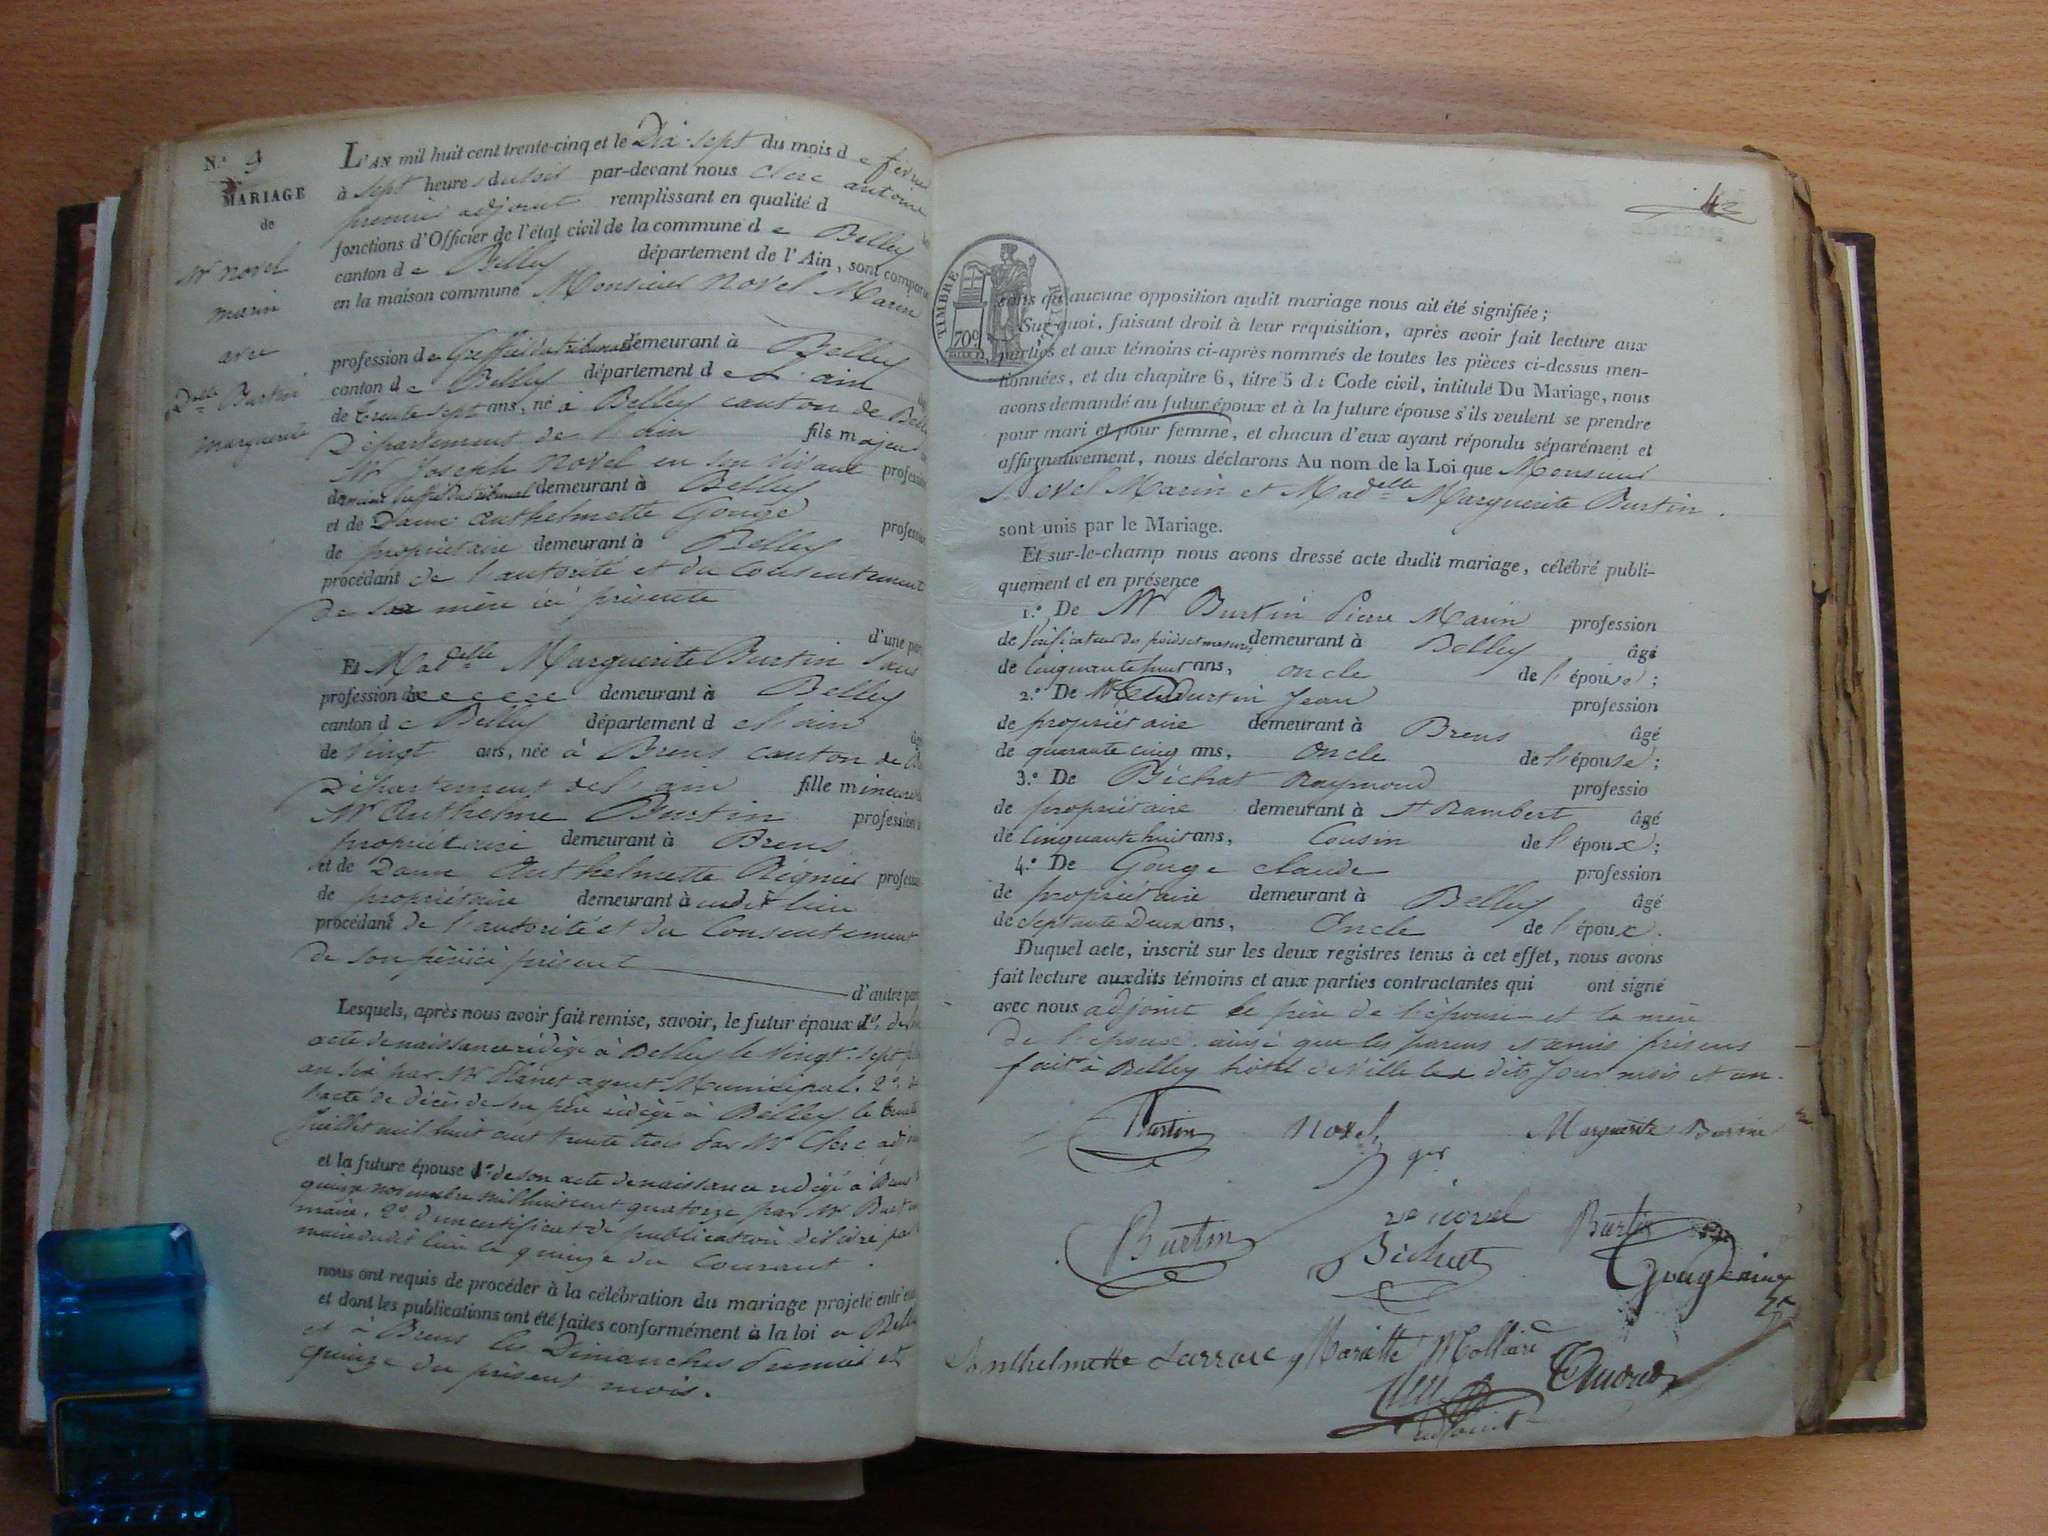 N.° 9
MARIAGE
de
Mr novel
marin
avec
Delle Burtin
marguerite
L'AN mil huit cent trente-cinq et le Dix-sept du mois de fevrier
à sept heures du soir par-devant nous Clerc antoine
premier adjoint remplissant en qualité d
fonctions d'Officier de l'état civil de la commune de Belley
canton de Belley département de l'Ain, sont comparus
en la maison commune Monsieur Novel Marin
profession de Greffier du tribunal demeurant à Belley
canton de Belley département de L'ain
de trente sept ans, né à Belley canton de Belley
Département de l'ain fils majeur
Mr Joseph Novel en son vivant profession
de Greffier du tribunal demeurant à Belley
et de Dame Anthelmette Gouge profession
de propriétaire demeurant à Belley
procédant de l'autorité et du Consentement
de sa mère ici présente
d'une part
Et Madelle Marguerite Burtin sans
profession de demeurant à Belley
canton de Belley département de l'ain
de vingt ans, née à Brens canton de
Département de l'ain fille mineure
Mr Anthelme Burtin profession
propriétaire demeurant à Brens
et de Dame Anthelmette Régnier profession
de propriétaire demeurant à audit lieu
procédant de l'autorité et du Consentement
de son père ici présent
d'autre part
Lesquels, après nous avoir fait remise, savoir, le futur époux 1°. de son
acte de naissance rédigé à Belley le vingt-sept
an six par Mr agent Municipal. 2°.
l'acte de décès de son père rédigé à Belley le trente
juillet mil huit cent trente trois par Mr Clerc adjoint
et la future épouse 1° de son acte de naissance rédigé à Brens
quinze novembre mil huit cent quatorze par Mr Burtin
maire. 2°. d'un certificat de publication délivré par
maire dudit lieu le quinze du Courant.
nous ont requis de procéder à la célébration du mariage projeté entr'eux
et dont les publications ont été faites conformément à la loi à Belley
et à Brens les Dimanches premier et
quinze du présent mois.
42
TIMBRE ROYAL
70c
sans qu'aucune opposition audit mariage nous ait été signifiée;
Sur quoi, faisant droit à leur requisition, après avoir fait lecture aux
parties et aux témoins ci-après nommés de toutes les pièces ci-dessus men-
tionnées, et du chapitre 6, titre 5 du Code civil, intitulé Du Mariage, nous
avons demandé au futur époux et à la future épouse s'ils veulent se prendre
pour mari et pour femme, et chacun d'eux ayant répondu séparément et
affirmativement, nous déclarons Au nom de la Loi que Monsieur
Novel Marin et Madelle Marguerite Burtin.
sont unis par le Mariage.
Et sur-le-champ nous avons dressé acte dudit mariage, célébré publi-
quement et en présence
1.° De Mr Burtin Pierre Marin profession
de vérificateur des poids et mesures demeurant à Belley âgé
de Cinquante huit ans, oncle de l'épouse;
2.° De Mr Burtin Jean profession
de propriétaire demeurant à Brens âgé
de quarante cinq ans, oncle de l'épouse;
3.° De Bichat Raymond professio
de propriétaire demeurant à St Rambert âgé
de Cinquante huit ans, Cousin de l'époux;
4.° De Gouge claude profession
de propriétaire demeurant à Belley âgé
de septante Deux ans, Oncle de l'époux.
Duquel acte, inscrit sur les deux registres tenus à cet effet, nous avons
fait lecture auxdits témoins et aux parties contractantes qui ont signé
avec nous adjoint le père de l'épouse et la mère
de l'époux ainsi que les parens et amis présens
fait à Belley hôtel de Ville les dits jour mois et an.
Burtin Novel Marguerite Burtin
ger
Burtin ve novel Burtin
Bichat Gouge
Anthelmette Larrare Mariette Mollard
Clerc
adjoint